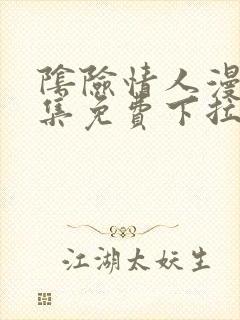 陰險情人漫
集免費下拉
江湖太妖生